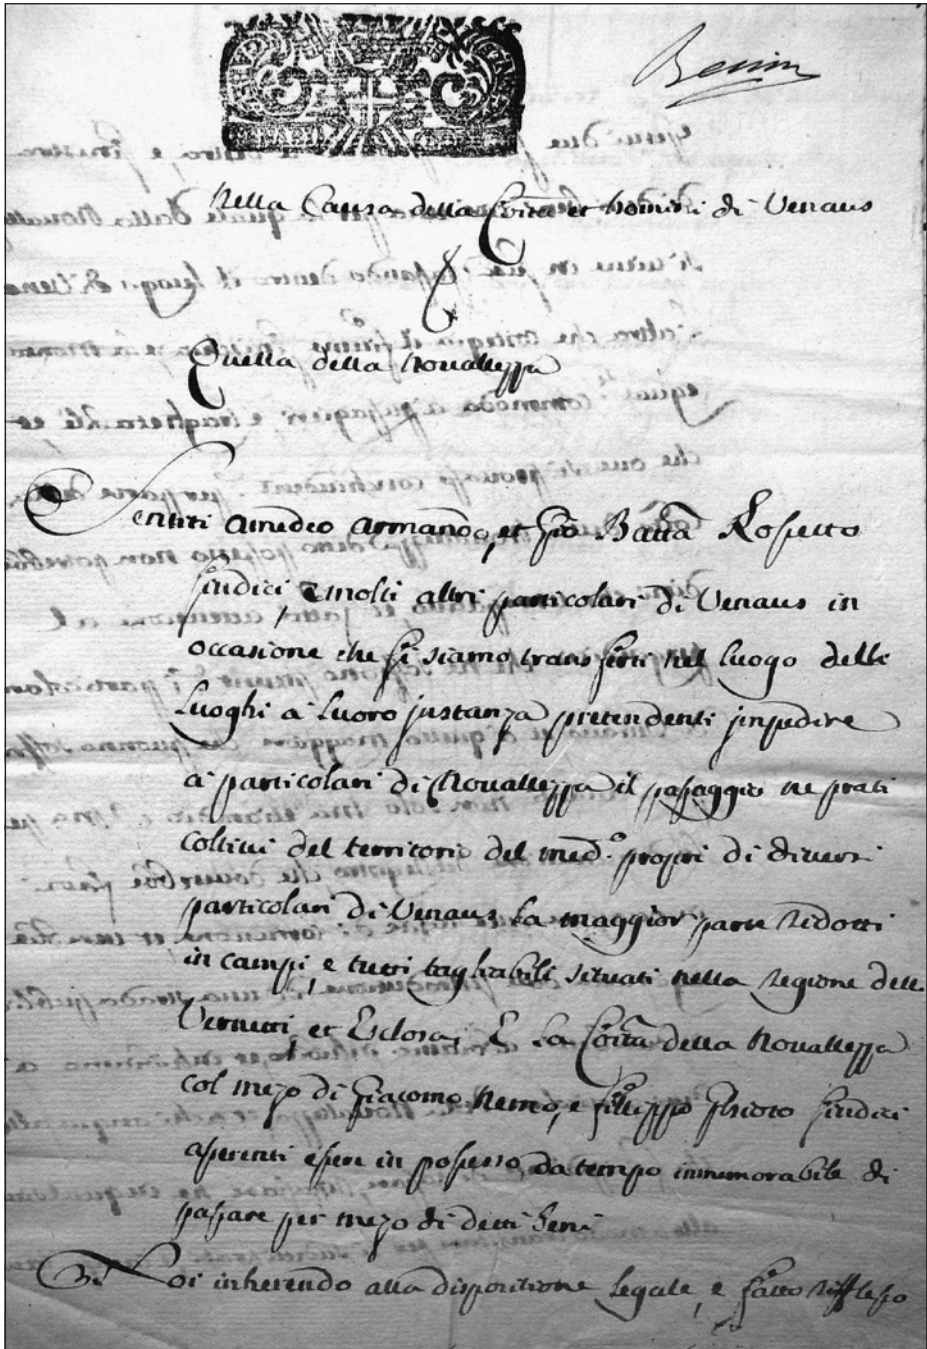 Nella Causa della Co.ita et homini di Venaus
&
Quella della Noualleyza
Sentiti Amedeo Armando, et Gio Batta Rosetto
sindici, e molti altri particolari di Venaus in
occasione che si siamo transferti nel luogo delle
Luoghi a luoro jnstanza pretendenti jmpedire
a particolari di Noualleyza il passaggio ne prati
coltiui del territorio del med.o propri di diuersi
particolari di Venaus la maggior parte ridotti
in campi, e tutti tagliabili situati nella regione delli
Vernetti, et Esclosa, E la Co.ita della Noualleyza
col mezo di Giacomo, e Filippo sindici
asserenti essere in possesso da tempo immemorabile di
passare per mezo di detti beni
Noi inherendo alla dispositione legale, e fatto rifflesso